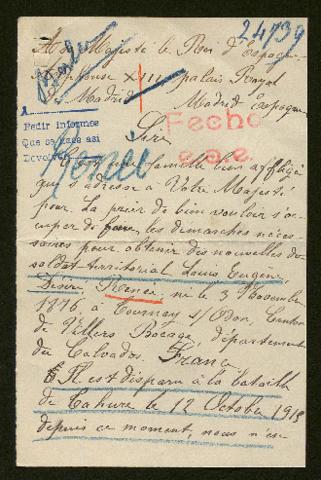 24739
A Sa Majesté le Roi d'Espagne
Alphonse XIII palais Royal
Madrid Madrid Espagne
Pedir informes
Que se pase asi
Devolver
Fecho
Sire
Renei
C'est une famille bien affligée
qui s'adresse a Votre Majesté
pour La prier de bien vouloir s'oc
cuper de faire les démarches néces
saires pour obtenir des nouvelles du
soldat territorial Louis Eugène,
Désiré Renei né le 3 Novembre
1876 à Tournay s/ Odon, Canton
de Villers Bocage, département
du Calvados. France
Il est disparu à la bataille
de Tahure le 12 Octobre 1915
depuis ce moment, nous n'en